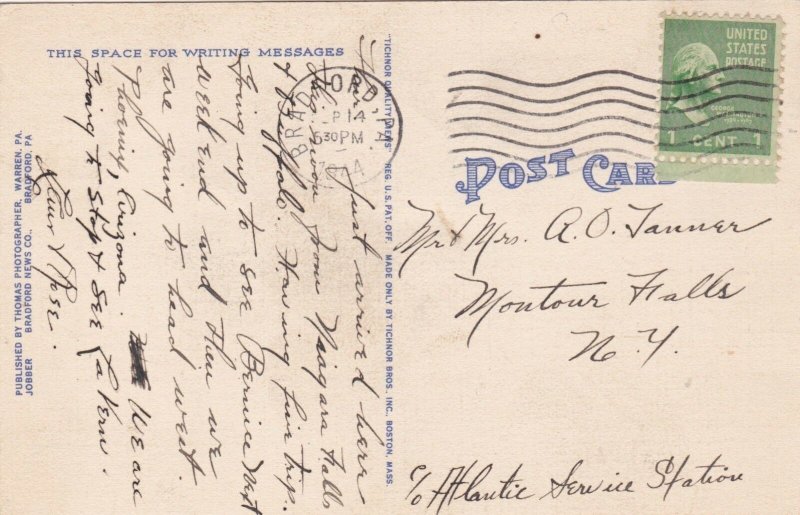 THIS SPACE FOR WRITING MESSAGES
Just arrived here
this noon from Niagara Falls
& Buffalo. Having fine trip.
Going up to see Bernice next
weekend and then we
are going to head west.
Phoenix, Arizona. We are
Going to Stop & See LaVern.
& Rose.
PUBLISHED BY THOMAS PHOTOGRAPHER, WARREN, PA.
JOBBER BRADFORD NEWS CO., BRADFORD, PA.
"TICHNOR QUALITY VIEWS" REG. U. S. PAT. OFF. MADE ONLY BY TICHNOR BROS., INC., BOSTON, MASS.
BRADFORD, PA
630 PM
1944
UNITED
STATES
POSTAGE
GEORGE
WASHINGTON
1 CENT 1
POST CARD
Mr & Mrs. A. O. Tanner
Montour Falls
N. Y.
c/o Atlantic Service Station